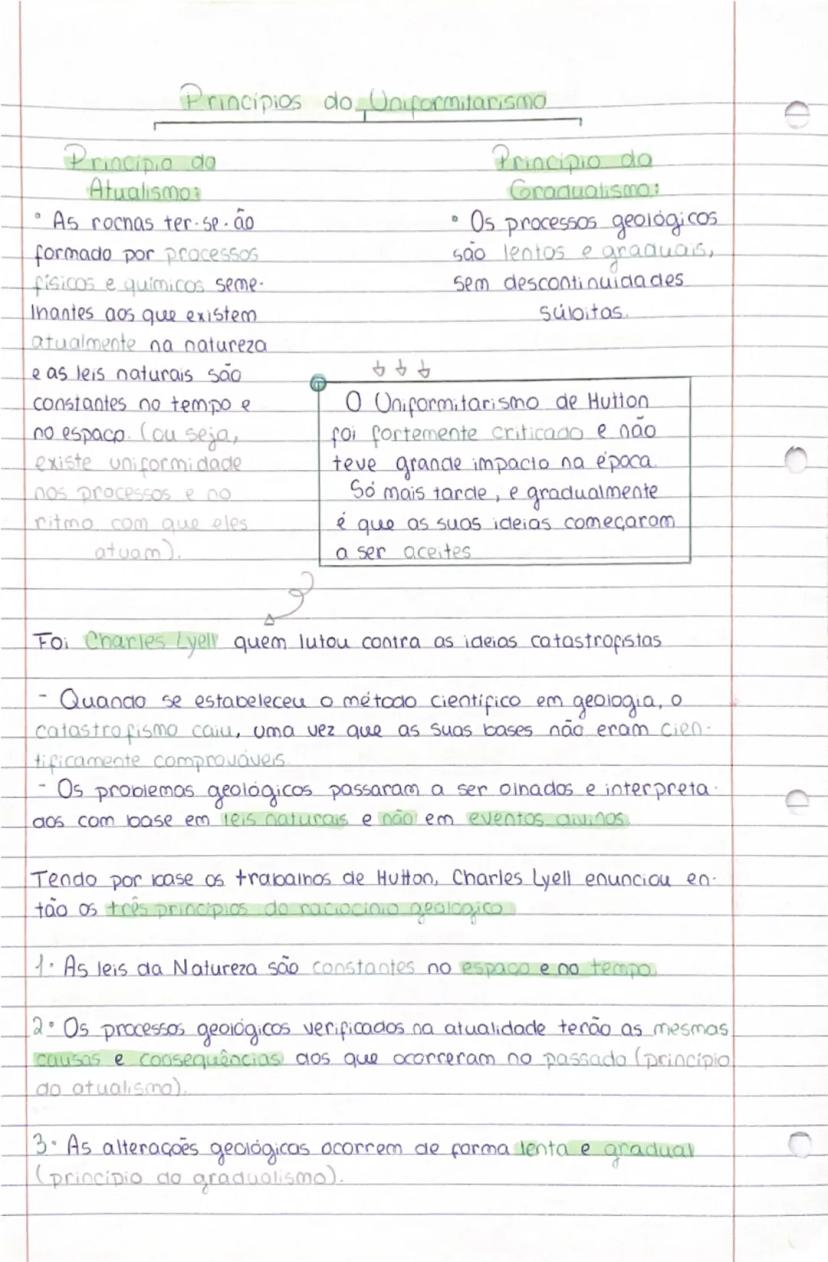 Princípios do Uniformitarismo
Princípio do
Atualismo:
• As rochas ter-se-ão
formado por processos
físicos e químicos seme-
lhantes aos que existem
atualmente na natureza
e as leis naturais são
constantes no tempo e
no espaço. (ou seja,
existe uniformidade
nos processos e no
ritmo com que eles
atuam).
Princípio do
Gradualismo:
• Os processos geológicos
são lentos e graduais,
sem descontinuidades
súbitas.
O Uniformitarismo de Hutton
foi fortemente criticado e não
teve grande impacto na época
Só mais tarde, e gradualmente
é que as suas ideias começaram
a ser aceites
Foi Charles Lyell quem lutou contra as ideias catastrofistas
- Quando se estabeleceu o método científico em geologia, o
catastrofismo caiu, uma vez que as suas bases não eram cien-
tificamente comprováveis.
- Os problemas geológicos passaram a ser olhados e interpreta-
dos com base em leis naturais e não em eventos divinos.
Tendo por base os trabalhos de Hutton, Charles Lyell enunciou en-
tão os três princípios do raciocínio geológico
1• As leis da Natureza são constantes no espaço e no tempo.
2• Os processos geológicos verificados na atualidade terão as mesmas
causas e consequências dos que ocorreram no passado (princípio
do atualismo).
3• As alterações geológicas ocorrem de forma lenta e gradual
(princípio do gradualismo).